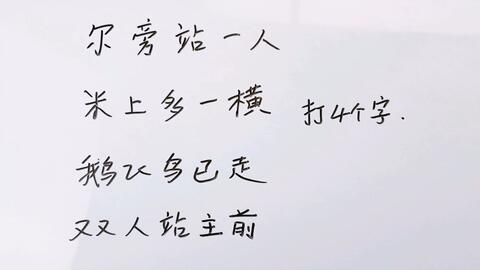 尔旁站一人
米上多一横
打4个字.
鹅飞鸟已走
双人站主前